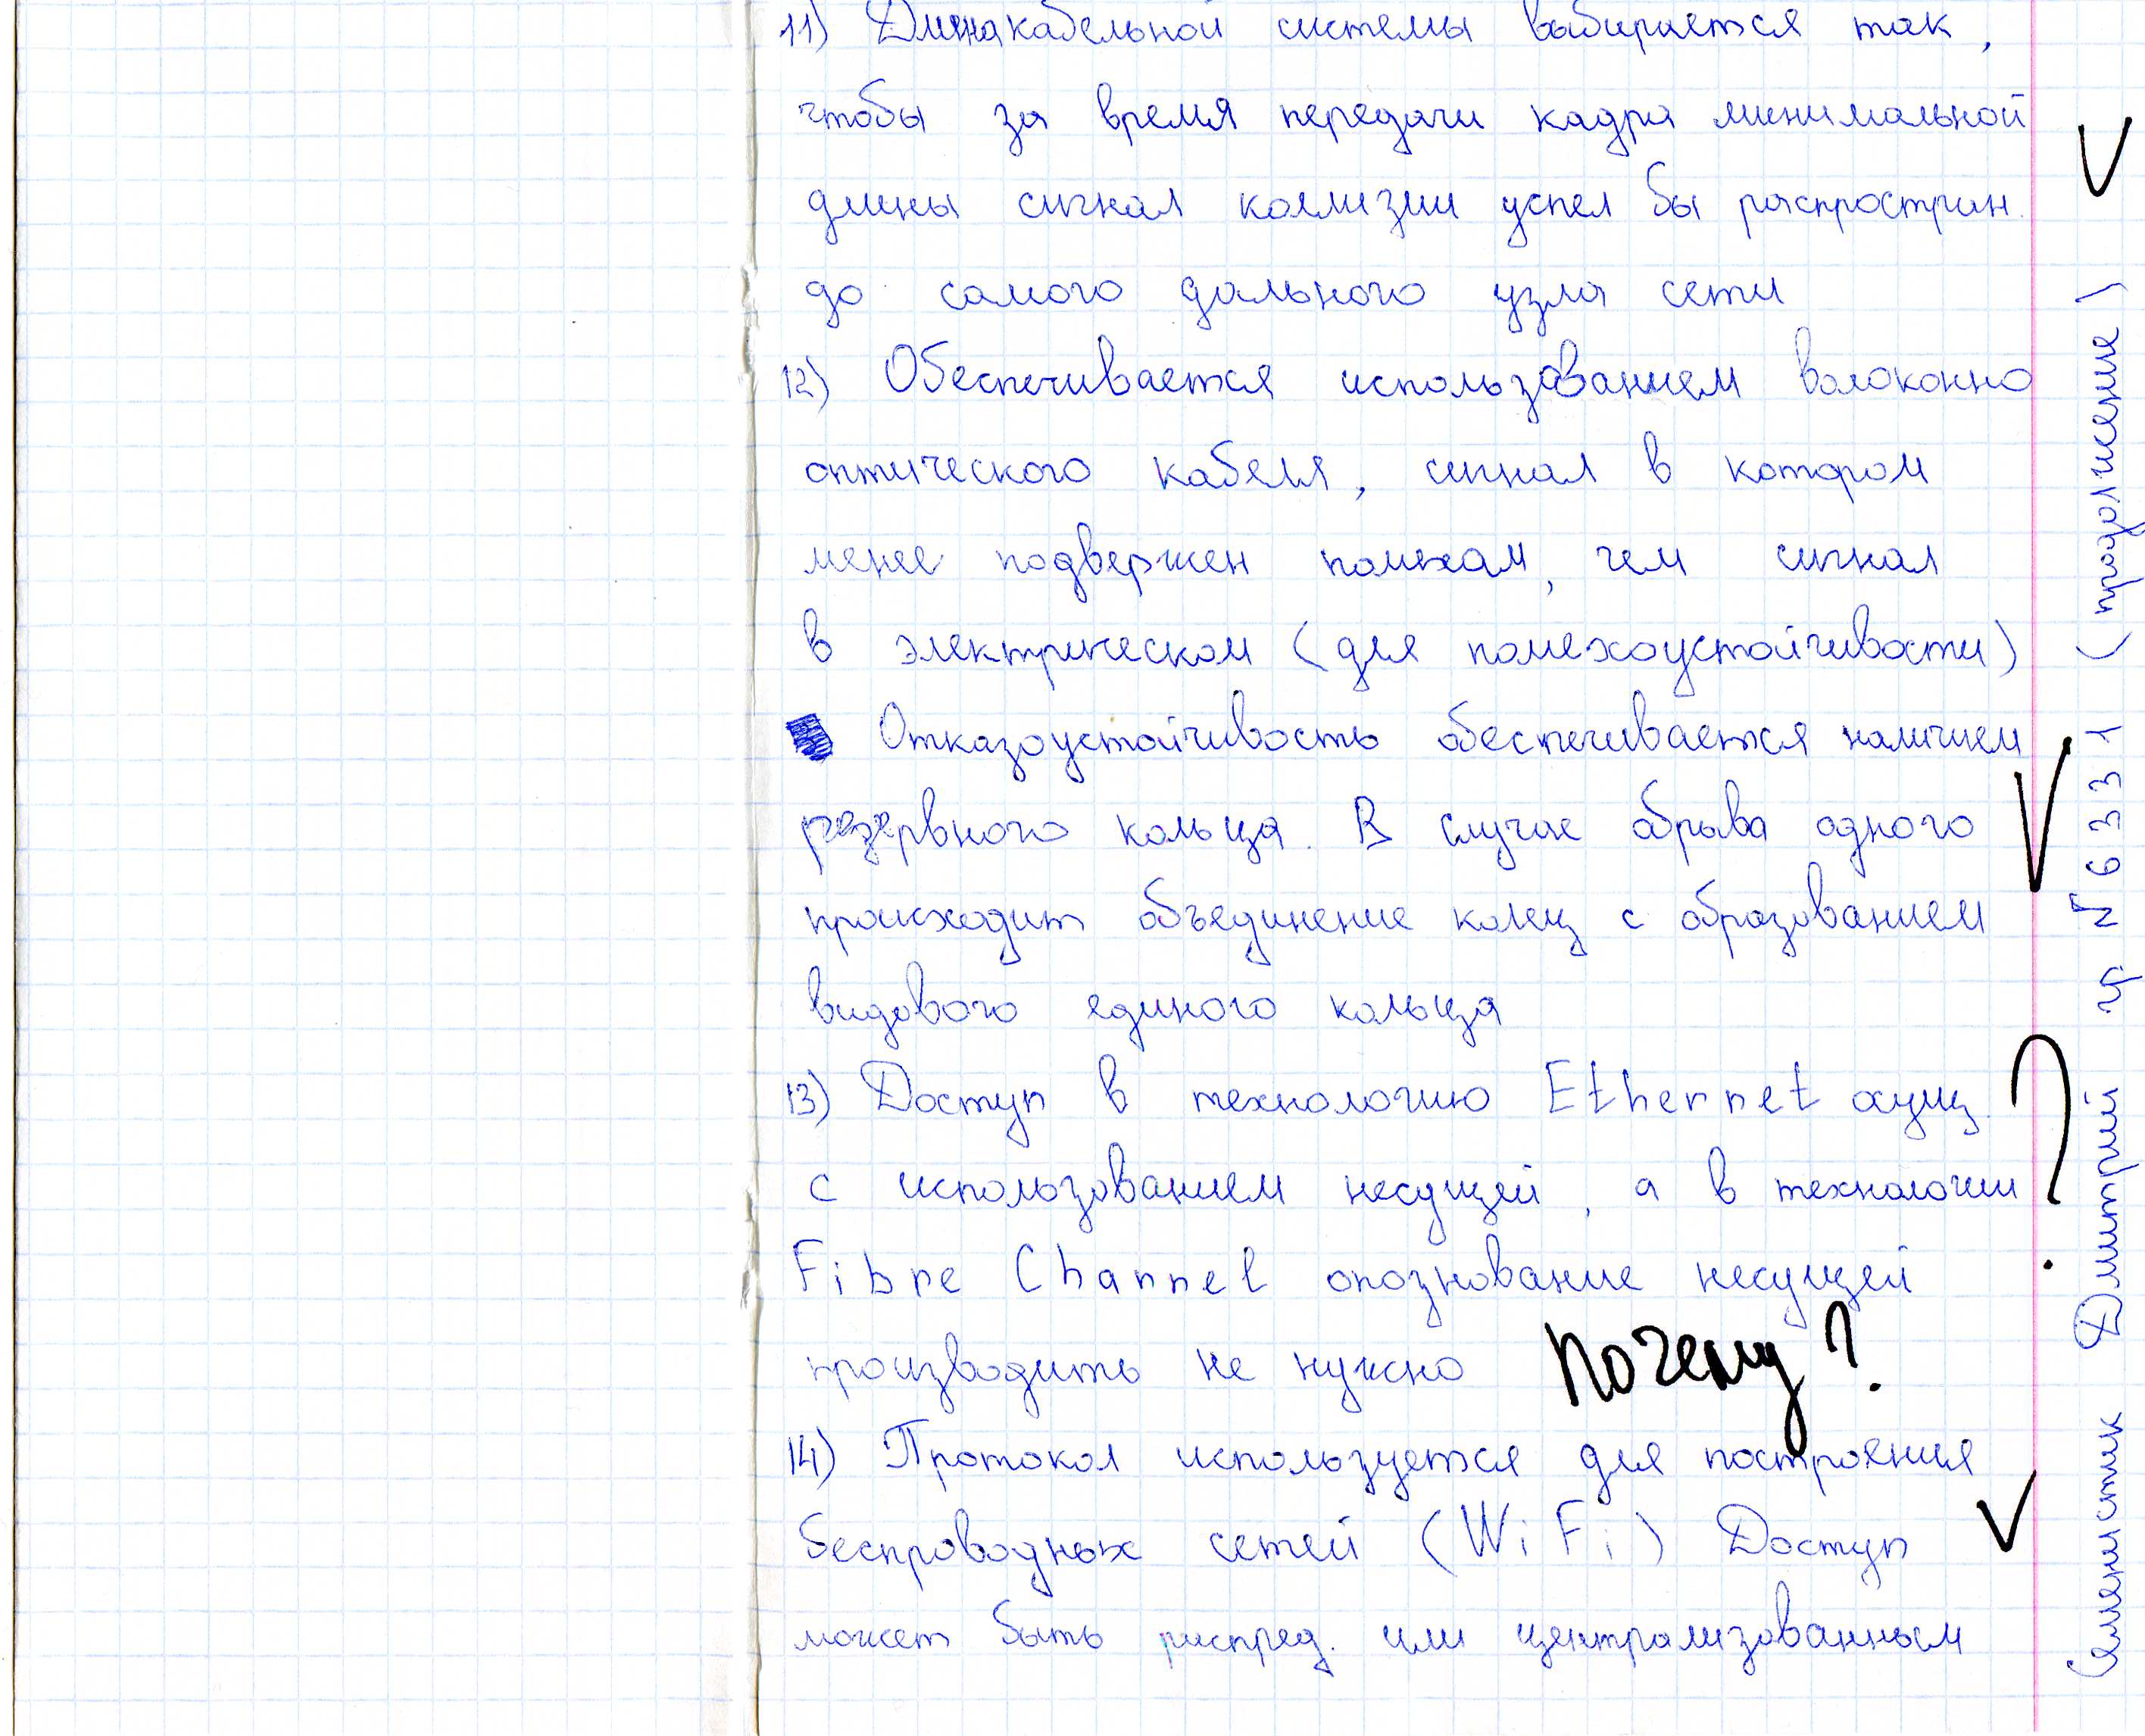 11) Длина кабельной системы выбирается так,
чтобы за время передачи кадра минимальной
длины сигнал коллизии успел бы распростран.
до самого дальнего узла сети
12) Обеспечивается использованием волоконно
оптического кабеля, сигнал в котором
менее подвержен помехам, чем сигнал
в электрическом (для помехоустойчивости)
Отказоустойчивость обеспечивается наличием
резервного кольца. В случае обрыва одного
происходит объединение колец с образованием
единого кольца
13) Доступ в технологию Ethernet осущ.
с использованием несущей, а в технологии
Fibre Channel опознование несущей
производить не нужно Почему?
14) Протокол используется для построения
беспроводных сетей (WiFi) Доступ
может быть распред. или централизованным
?
Дмитрий гр №6331 (продолжение)